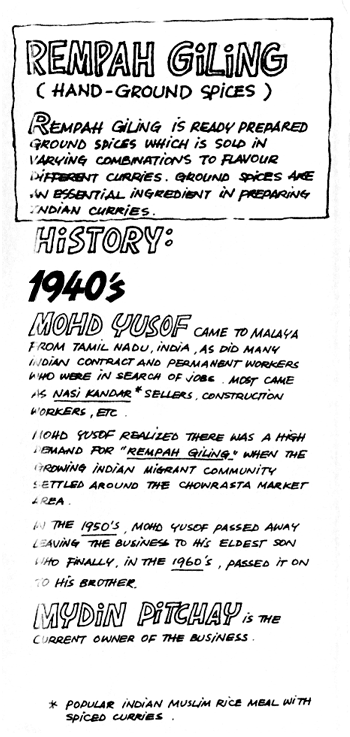 REMPAH GILING
( HAND-GROUND SPICES )
REMPAH GILING IS READY PREPARED
GROUND SPICES WHICH IS SOLD IN
VARYING COMBINATIONS TO FLAVOUR
DIFFERENT CURRIES. GROUND SPICES ARE
AN ESSENTIAL INGREDIENT IN PREPARING
INDIAN CURRIES.
HISTORY:
1940's
MOHD YUSOF CAME TO MALAYA
FROM TAMIL NADU, INDIA, AS DID MANY
INDIAN CONTRACT AND PERMANENT WORKERS
WHO WERE IN SEARCH OF JOBS. MOST CAME
AS NASI KANDAR* SELLERS, CONSTRUCTION
WORKERS, ETC.
MOHD YUSOF REALIZED THERE WAS A HIGH
DEMAND FOR "REMPAH GILING" WHEN THE
GROWING INDIAN MIGRANT COMMUNITY
SETTLED AROUND THE CHOWRASTA MARKET
AREA.
IN THE 1950's, MOHD YUSOF PASSED AWAY
LEAVING THE BUSINESS TO HIS ELDEST SON
WHO FINALLY, IN THE 1960's, PASSED IT ON
TO HIS BROTHER.
MYDIN PITCHAY IS THE
CURRENT OWNER OF THE BUSINESS.
* POPULAR INDIAN MUSLIM RICE MEAL WITH
SPICED CURRIES.